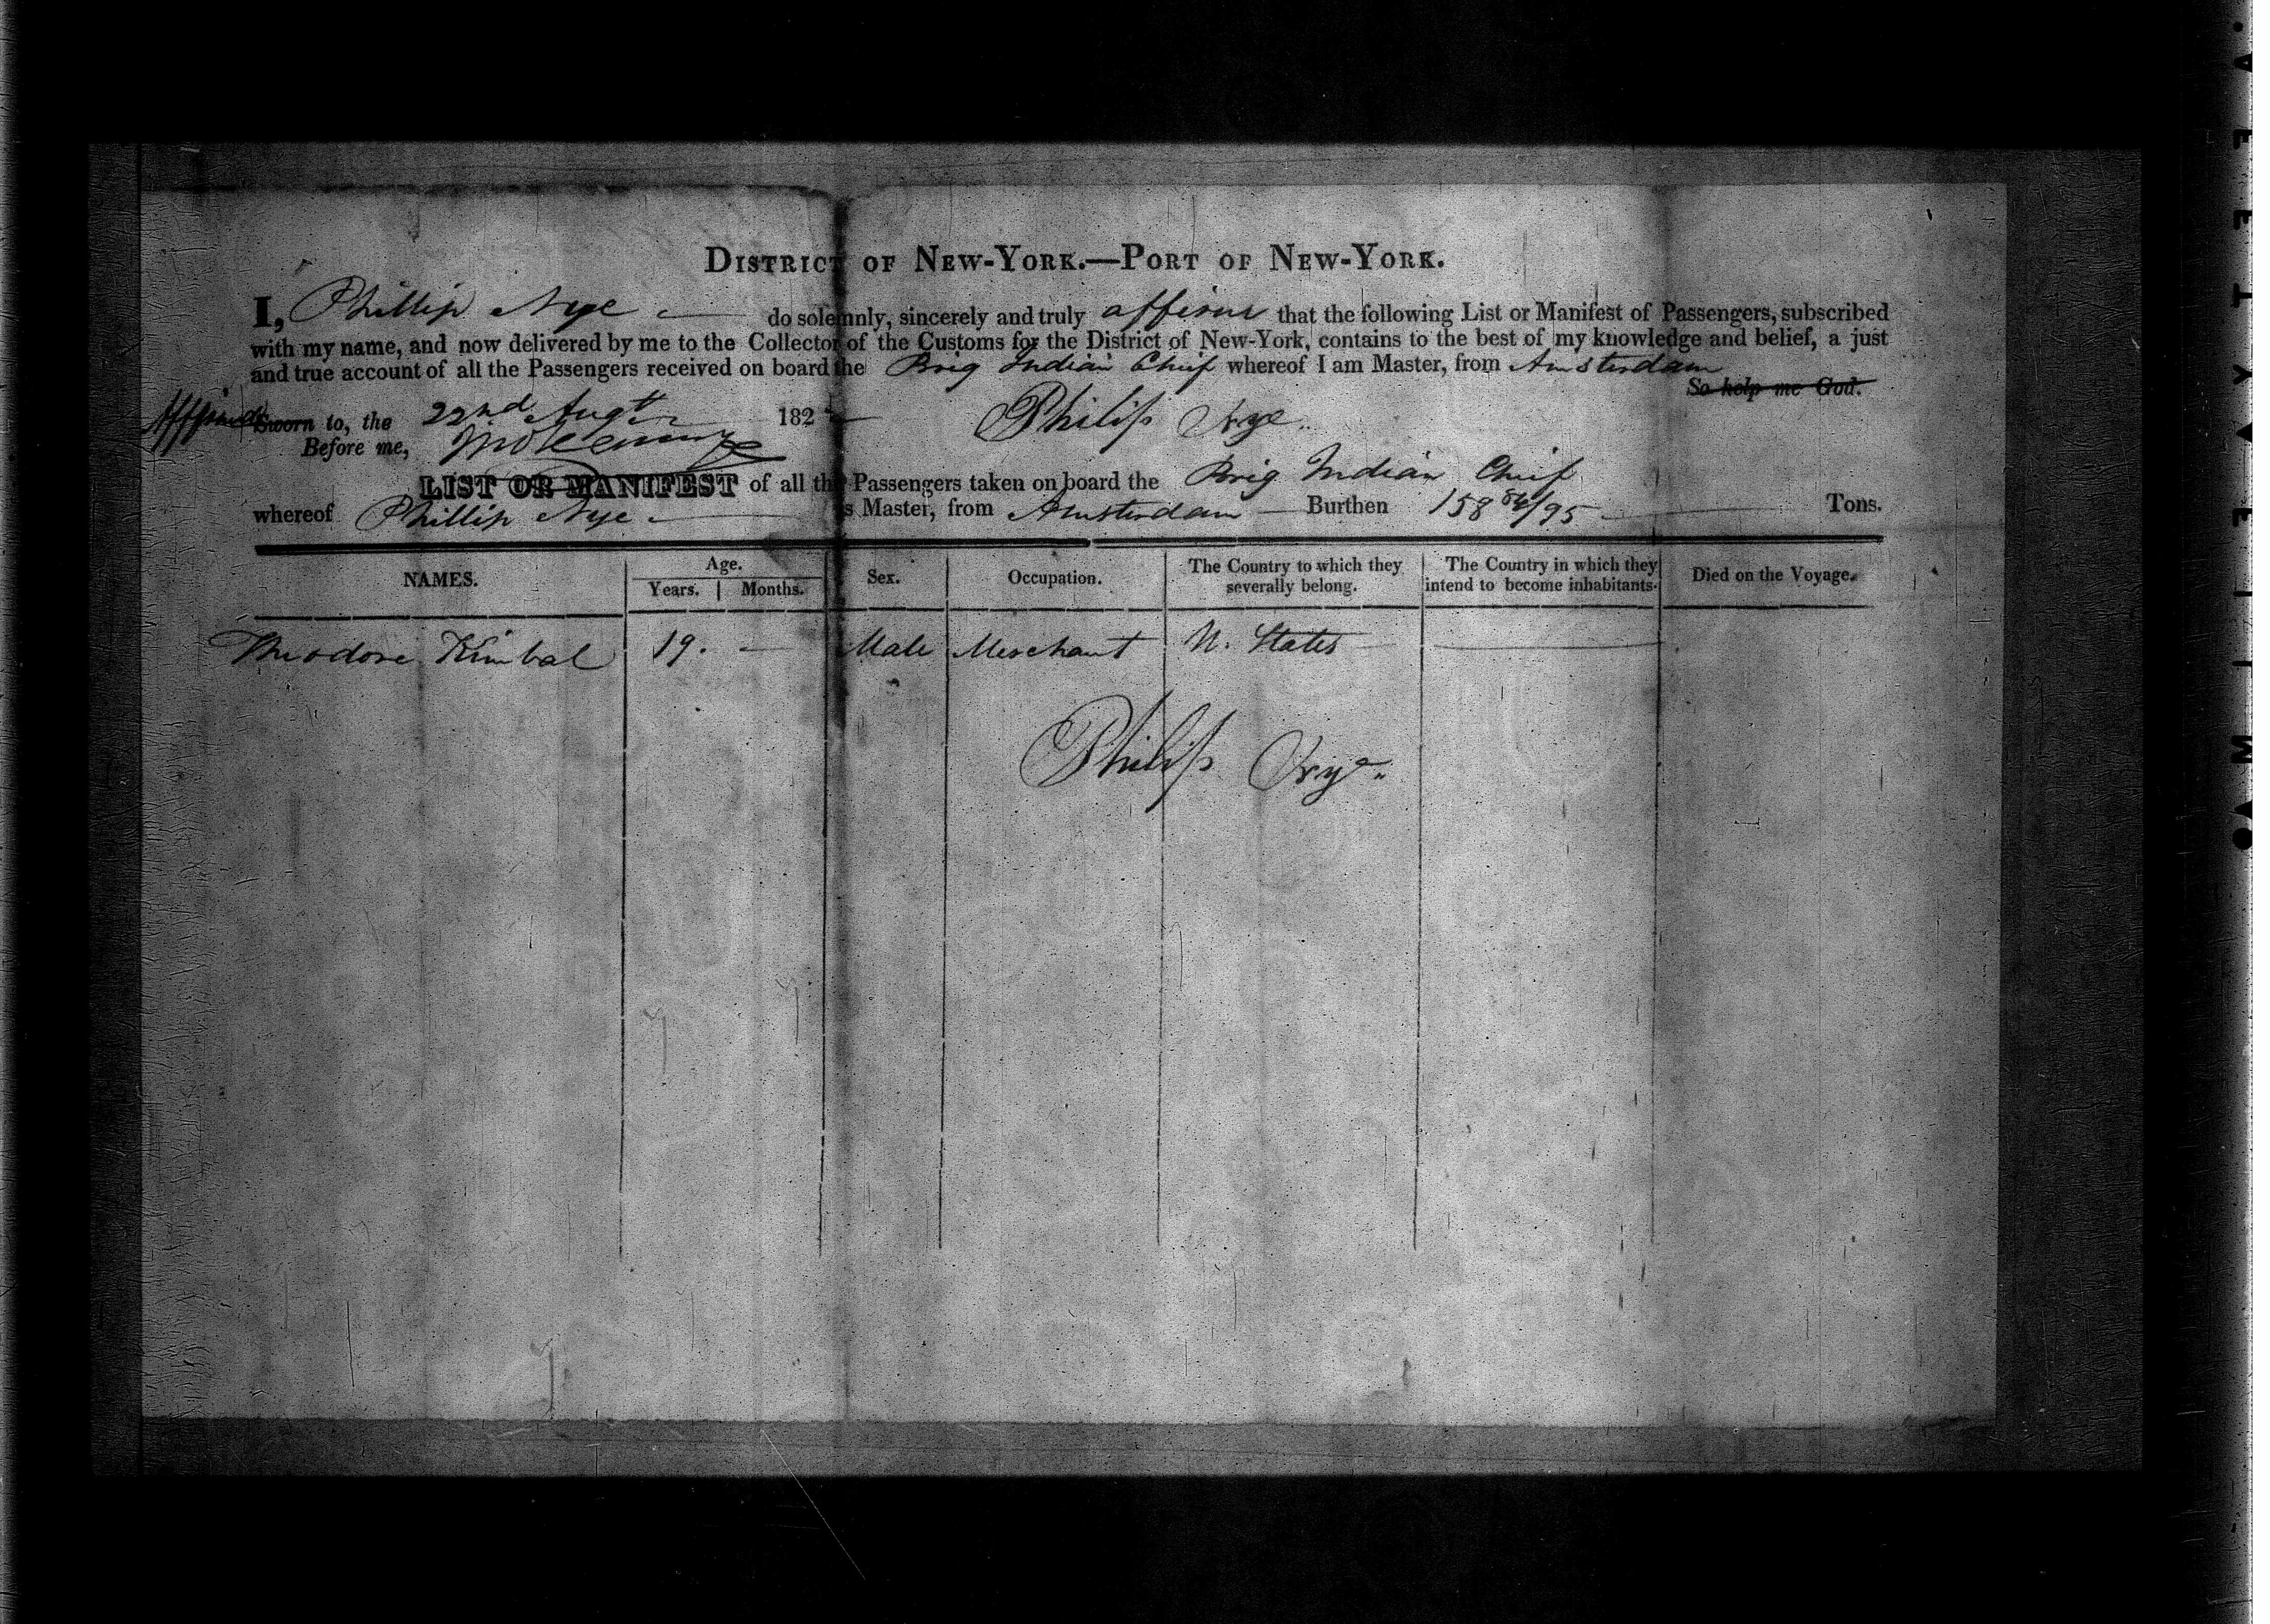 DISTRICT OF NEW-YORK.—PORT OF NEW-YORK.
I, Phillip Nye do solemnly, sincerely and truly affirm that the following List or Manifest of Passengers, subscribed
with my name, and now delivered by me to the Collector of the Customs for the District of New-York, contains to the best of my knowledge and belief, a just
and true account of all the Passengers received on board the Brig Indian Chief whereof I am Master, from Amsterdam
So help me God.
Affirmed Sworn to, the 22nd Augt 182
Philip Nye.
Before me,
LIST OR MANIFEST of all the Passengers taken on board the Brig Indian Chief
whereof Phillip Nye is Master, from Amsterdam — Burthen 158 84/95 Tons.
NAMES. Age. Years. Months. Sex. Occupation. The Country to which they severally belong. The Country in which they intend to become inhabitants. Died on the Voyage.
Theodore Kimbal 19. — Male Merchant U. States —
Philip Nye.